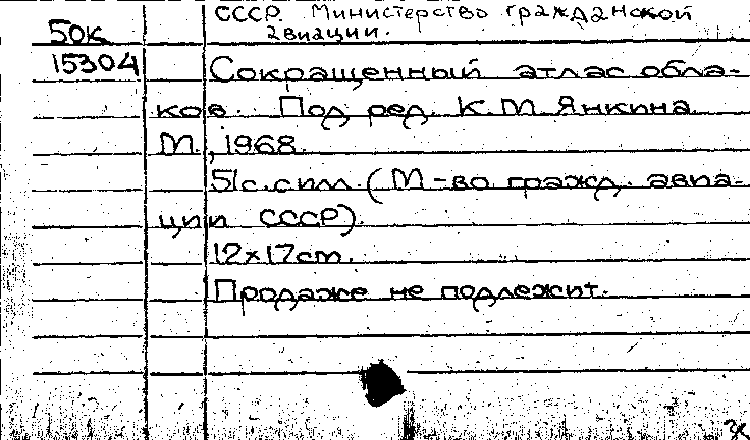 СССР. Министерство гражданской
50К
авиации.
15304
Сокращенный атлас обла-
ков. Под ред. К.М. Янкина
М., 1968.
51с. с илл. (М-во гражд. авиа-
ции СССР).
12х17см.
Продаже не подлежит.